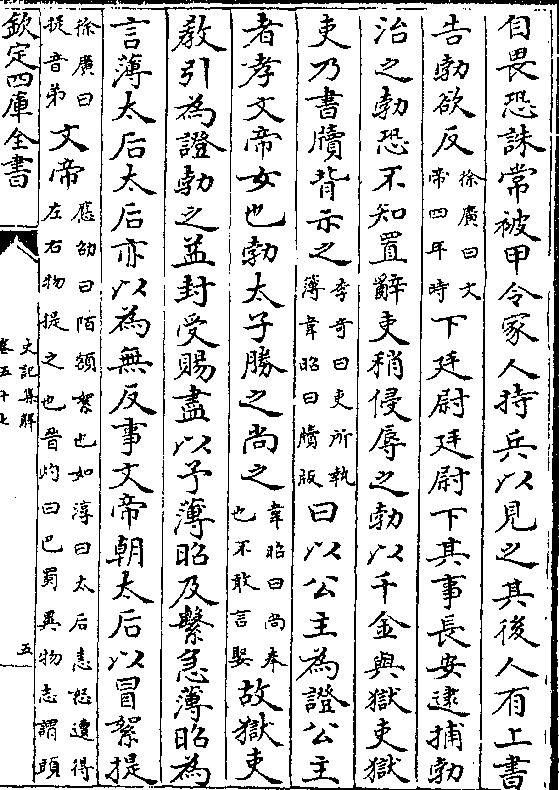 自畏恐誅常被甲令家人持兵以見之其後人有上書
告勃欲反徐廣曰文帝四年時下廷尉廷尉下其事長安逮捕勃
治之勃恐不知置辭吏稍侵辱之勃以千金與獄吏獄
吏乃書牘背示之李奇曰吏所執簿韋昭曰牘版曰以公主為證公主
者孝文帝女也勃太子勝之尚之韋昭曰尚奉也不敢言娶故獄吏
教引為證勃之益封受賜盡以予薄昭及繫急薄昭為
言薄太后太后亦以為無反事文帝朝太后以冒絮提
徐廣曰提音弟文帝應劭曰陌額絮也如淳曰太后恚怒遭得左右物提之也晉灼曰巴蜀異物志謂頭
欽定四庫全書
史記集解
卷五十七
五